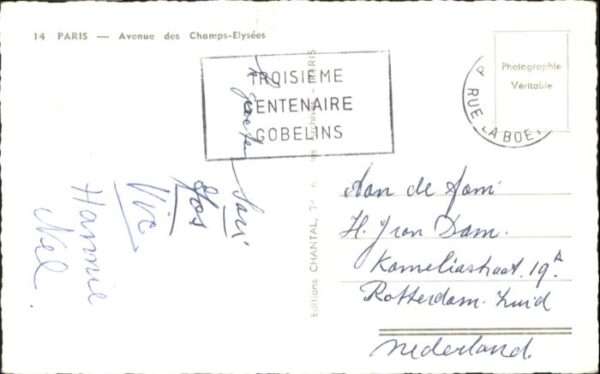 14 PARIS — Avenue des Champs-Elysées
TROISIEME
CENTENAIRE
GOBELINS
PARIS
RUE LA BOE
Photographie
Véritable
Editions CHANTAL, 74, PARIS
groeten
Jos
Vic
Hannie
Nel.
Aan de fam:
H. J van Dam.
Kameliastraat. 19.A
Rotterdam. Zuid
Nederland.